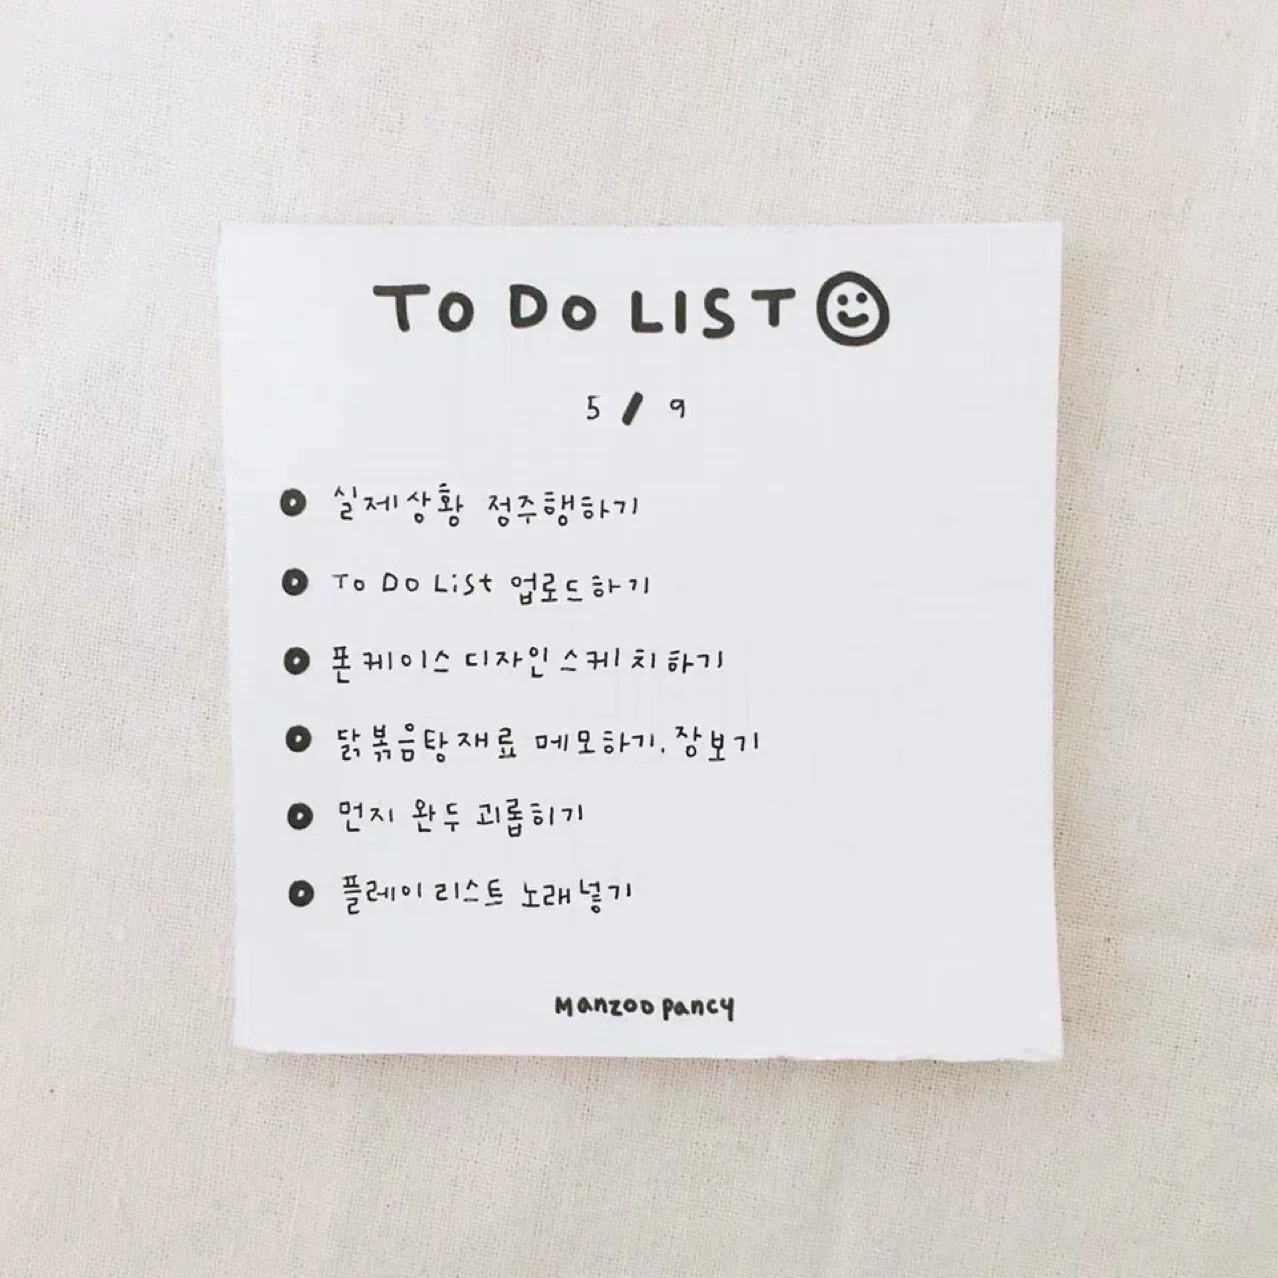 TO DO LIST
5 / 9
실제상황 정주행하기
To Do List 업로드하기
폰케이스 디자인 스케치하기
닭볶음탕 재료 메모하기, 장보기
먼지 완두 괴롭히기
플레이리스트 노래넣기
Manzoo pancy